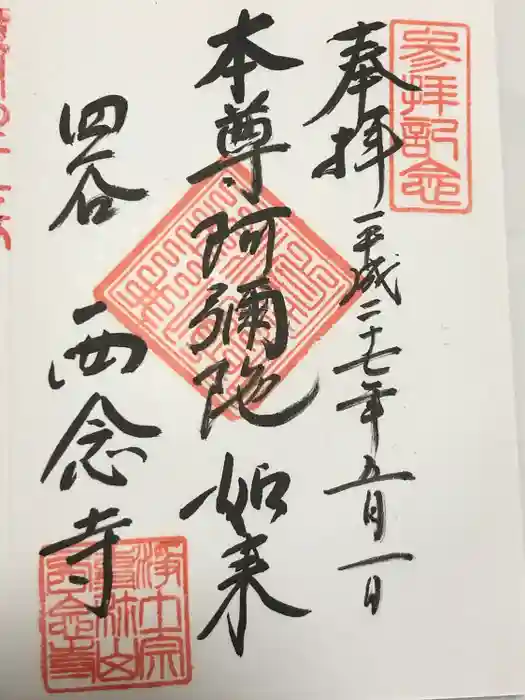 参拝記念
奉拝
平成二十七年五月一日
本尊阿彌陀如来
四谷
西念寺
浄土宗
西念寺